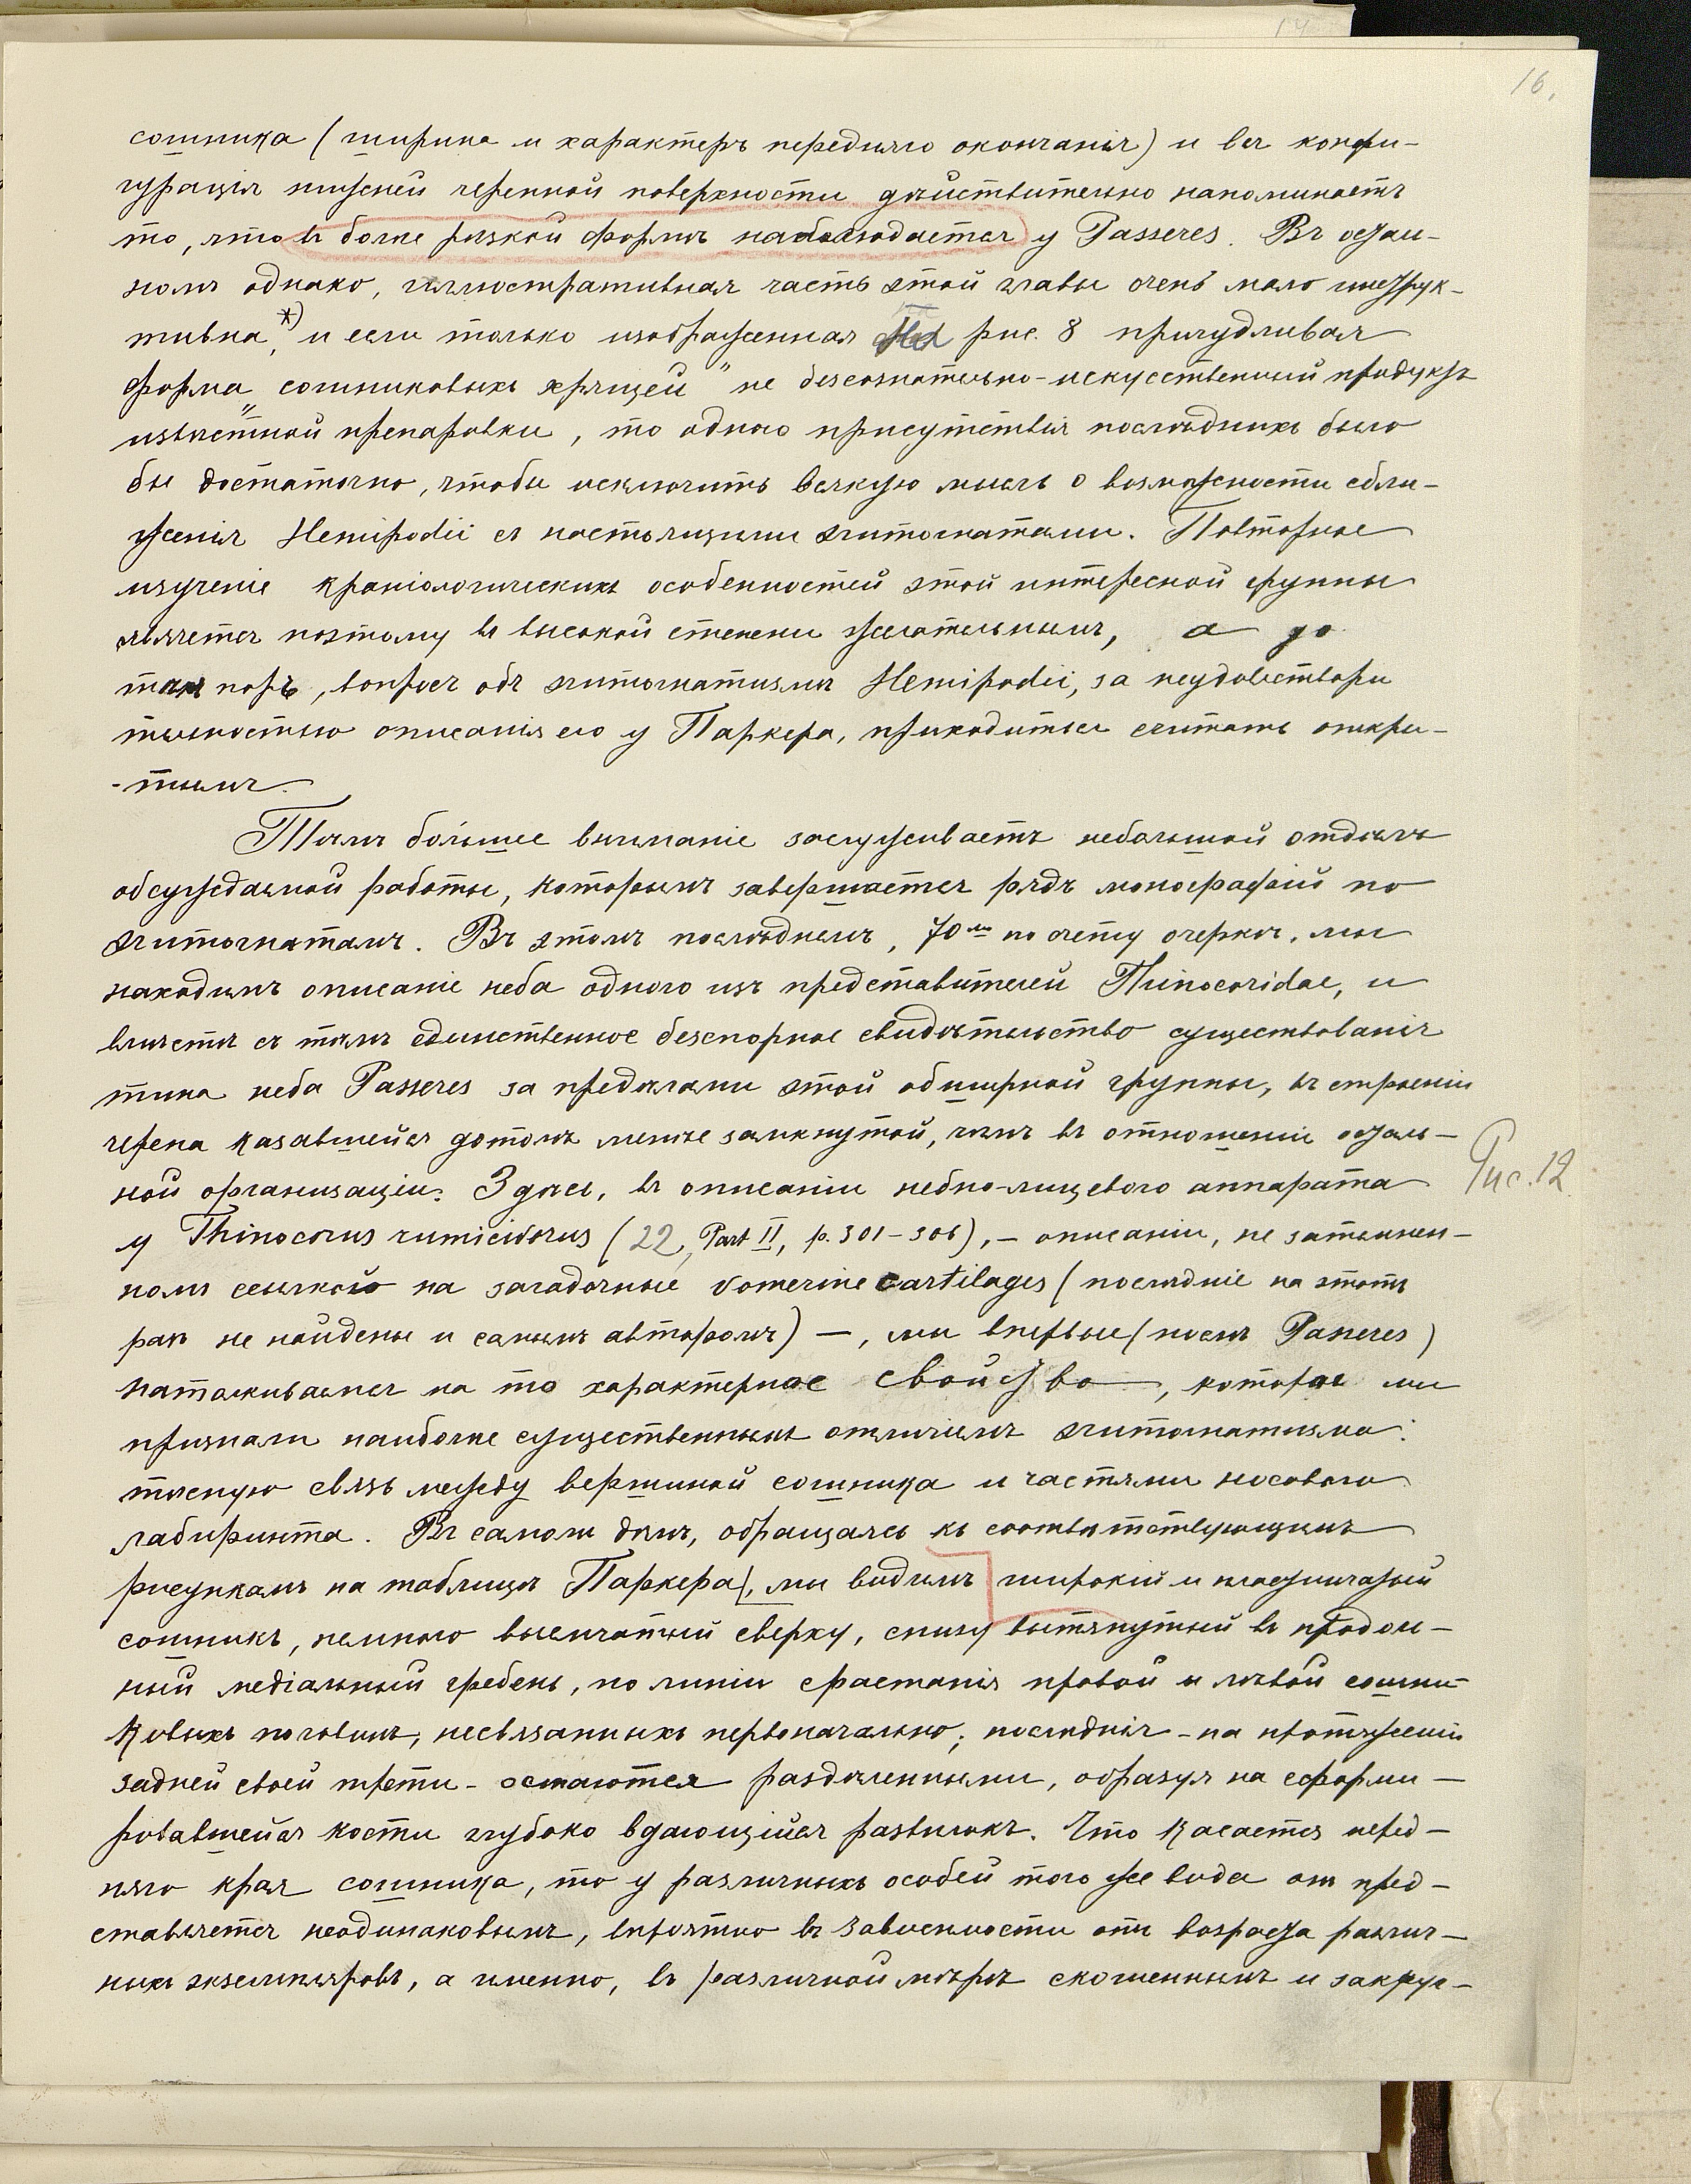 16.
сошника (ширина и характеръ передняго окончанія) и вся конфи-
гурація нижней черепной поверхности дѣйствительно напоминаетъ
то, что въ болѣе рѣзкой формѣ наблюдается у Passeres. Въ осталь-
номъ однако, иллюстративная часть этой главы очень мало инструк-
тивна*), и если только изображенная на рис. 8 причудливая
форма „сошниковыхъ хрящей" не безсознательно-искусственный продуктъ
извѣстной препаровки, то одного присутствія послѣднихъ было
бы достаточно, чтобы исключить всякую мысль о возможности сбли-
женія Hemipodii съ настоящими эгитогнатами. Повторное
изученіе краніологическихъ особенностей этой интересной группы
является поэтому въ высокой степени желательнымъ, а до
тѣхъ поръ, вопросъ объ эгитогнатизмѣ Hemipodii, за неудовлетвори
тельностью описанія его у Паркера, приходиться считать откры-
-тымъ.
Тѣмъ бо́льшее вниманіе заслуживаетъ небольшой отдѣлъ
обсуждаемой работы, которымъ завершается рядъ монографій по
эгитогнатамъ. Въ этомъ послѣднемъ, 70мъ по счету очеркѣ, мы
находимъ описаніе неба одного изъ представителей Thinocoridae, и
вмѣстѣ съ тѣмъ единственное безспорное свидѣтельство существованія
типа неба Passeres за предѣлами этой обширной группы, въ строеніи
черепа казавшейся дотолѣ менѣе замкнутой, чѣмъ въ отношеніи осталь-
ной организаціи. Здѣсь, въ описаніи небно-лицевого аппарата
Рис. 12
у Thinocorus rumicivorus (22, Part II, p. 301-306), - описаніи, не затемнен-
номъ ссылкой на загадочные vomerine cartilages (послѣдніе на этотъ
разъ не найдены и самимъ авторомъ) —, мы впервые (послѣ Passeres)
наталкиваемся на то характерное свойство, которое мы
признали наиболѣе существеннымъ отличіемъ эгитогнатизма:
тѣсную связь между вершиной сошника и частями носового
лабиринта. Въ самомъ дѣлѣ, обращаясь къ соотвѣтствующимъ
рисункамъ на таблицѣ Паркера, мы видимъ широкій и пластинчатый
сошникъ, немного выемчатый сверху, снизу вытянутый въ продоль-
ный медіальный гребень, по линіи сростанія правой и лѣвой сошни-
ковыхъ половинъ, несвязанныхъ первоначально; послѣднія - на протяженіи
задней своей трети - остаются раздѣленными, образуя на сформи-
ровавшейся кости глубоко вдающійся развилокъ. Что касается перед-
няго края сошника, то у различныхъ особей того же вида он пред-
ставляется неодинаковымъ, вѣроятно въ зависимости отъ возраста различ-
ныхъ экземпляровъ, а именно, въ различной мѣрѣ скошеннымъ и закруг-